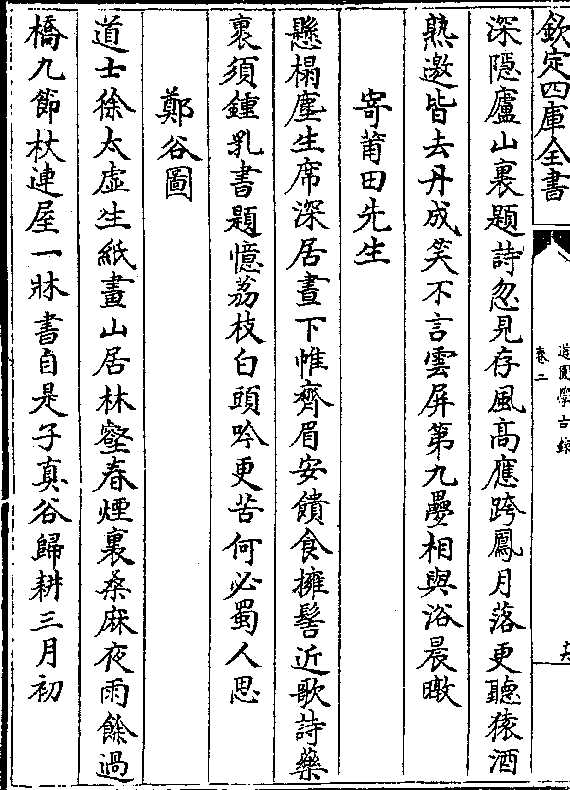 欽定四庫全書
道園學古錄
卷二
深隱廬山裏題詩忽見存風髙應跨鳳月落更聽猿酒
熟邀皆去丹成笑不言雲屏第九疊相與浴晨暾
寄莆田先生
懸榻塵生席深居晝下帷齊眉安饋食擁髻近歌詩藥
裹須鍾乳書題憶荔枝白頭吟更苦何必蜀人思
鄭谷圖
道士徐太虛生紙畫山居林壑春煙裏桑麻夜雨餘過
橋九節杖連屋一牀書自是子真谷歸耕三月初